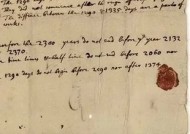 The 1290 days
They did not commence after the reign of
The difference between the 1290 & 1335 days are a parts of
weeks.
before the 2300 years do not end before yᵉ year 2132
2370.
time times & half time do not end before 2060 nor
1290 days do not begin before 2090 nor after 1374